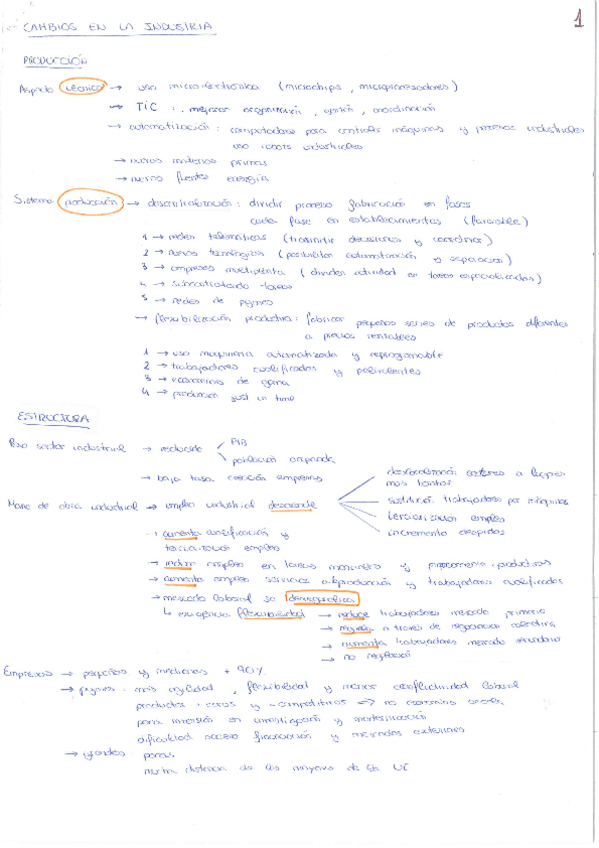 1
CAMBIOS EN LA INDUSTRIA
PRODUCCIÓN
Aspecto técnico → uso microelectrónica (microchips, microprocesadores)
→ TIC : mejorar organización, gestión, coordinación
→ automatización : computadoras para controlar máquinas y procesos industriales
uso robots industriales
→ nuevas materias primas
→ nuevas fuentes energía
Sistema producción → descentralización : dividir proceso fabricación en fases
cada fase en establecimientos (favorable)
1 → redes telemáticas (trasmitir decisiones y coordinar)
2 → nuevas tecnologías (posibilitan automatización y separación)
3 → empresas multiplanta (dividen actividad en tareas especializadas)
4 → subcontratando tareas
5 → redes de pymes
→ flexibilización productiva : fabricar pequeñas series de productos diferentes
a precios rentables
1 → uso maquinaria automatizada y reprogramable
2 → trabajadores cualificados y polivalentes
3 → economías de gama
4 → producción just in time
ESTRUCTURA
Peso sector industrial → reducido
PIB
población ocupada
→ baja tasa creación empresas
Mano de obra industrial → empleo industrial desciende
deslocalización
sustitución trabajadores por máquinas
terciarización empleo
incremento despidos
· aumenta cualificación y
terciarización empleo
→ reduce empleo en tareas
→ aumenta empleo servicios a la producción y trabajadores cualificados
→ mercado laboral se
↳ flexibilidad → reduce trabajadores mercado primario
→ a través de negociación colectiva
→ aumenta trabajadores mercado secundario
→ no
Empresas → pequeñas y medianas + 90%
→ pymes : más agilidad, flexibilidad y menor conflictividad laboral
productos + caros y - competitivos → no economías escala
para inversión en investigación y modernización
dificultad acceso financiación y mercados externos
→ grandes : pocas
mucha distancia de las mayores de la UE